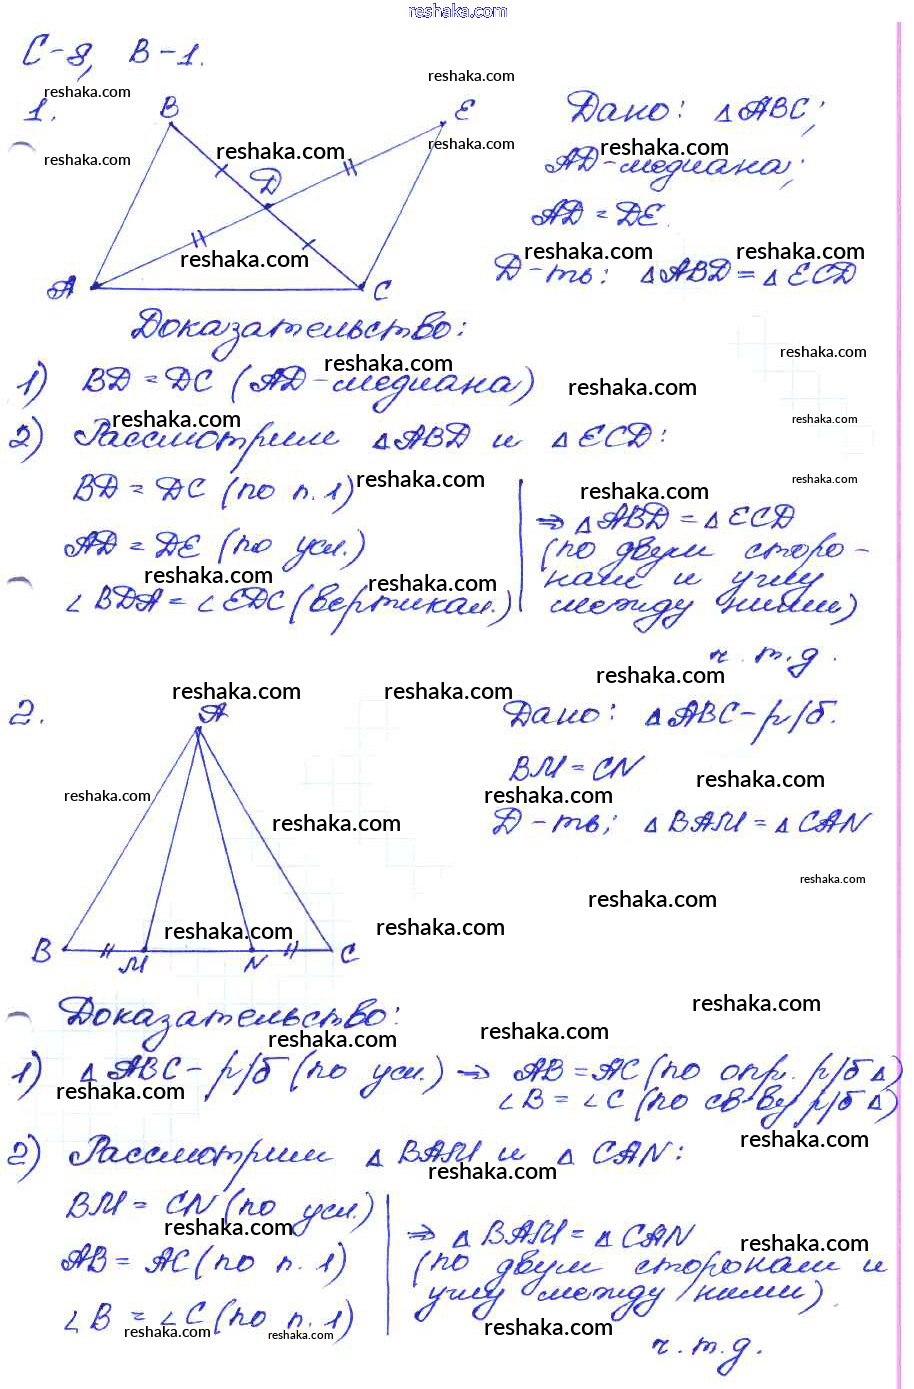 reshaka.com
С-8, В-1.
reshaka.com
reshaka.com
1.
B
E
Дано: △ABC;
reshaka.com
reshaka.com
reshaka.com
reshaka.com
D
AD-медиана;
AD = DE.
reshaka.com
reshaka.com
reshaka.com
Д-ть: △ABD = △ECD
A
C
Доказательство:
reshaka.com
reshaka.com
reshaka.com
1) BD = DC (AD-медиана)
reshaka.com
reshaka.com
2) Рассмотрим △ABD и △ECD:
reshaka.com
reshaka.com
reshaka.com
BD = DC (по п. 1)
⇒ △ABD = △ECD
AD = DE (по усл.)
(по двум сторо-
reshaka.com
reshaka.com
нам и углу
∠BDA = ∠EDC (вертикал.)
между ними)
ч.т.д.
reshaka.com
reshaka.com
reshaka.com
2.
A
Дано: △ABC - р/б.
BM = CN
reshaka.com
reshaka.com
reshaka.com
reshaka.com
Д-ть; △BAM = △CAN
reshaka.com
reshaka.com
reshaka.com
reshaka.com
B
M
N
C
Доказательство:
reshaka.com
reshaka.com
reshaka.com
1) △ABC - р/б (по усл.) ⇒ AB = AC (по опр. р/б △)
reshaka.com
∠B = ∠C (по св-ву р/б △)
reshaka.com
2) Рассмотрим △BAM и △CAN:
reshaka.com
BM = CN (по усл.)
reshaka.com
⇒ △BAM = △CAN
reshaka.com
AB = AC (по п. 1)
(по двум сторонам и
углу между ними).
∠B = ∠C (по п. 1)
reshaka.com
reshaka.com
reshaka.com
ч.т.д.